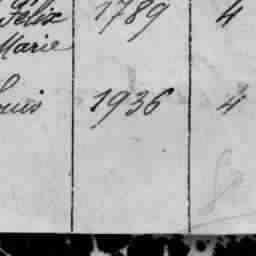 Félix 1789 4
Marie
ouis 1936 4